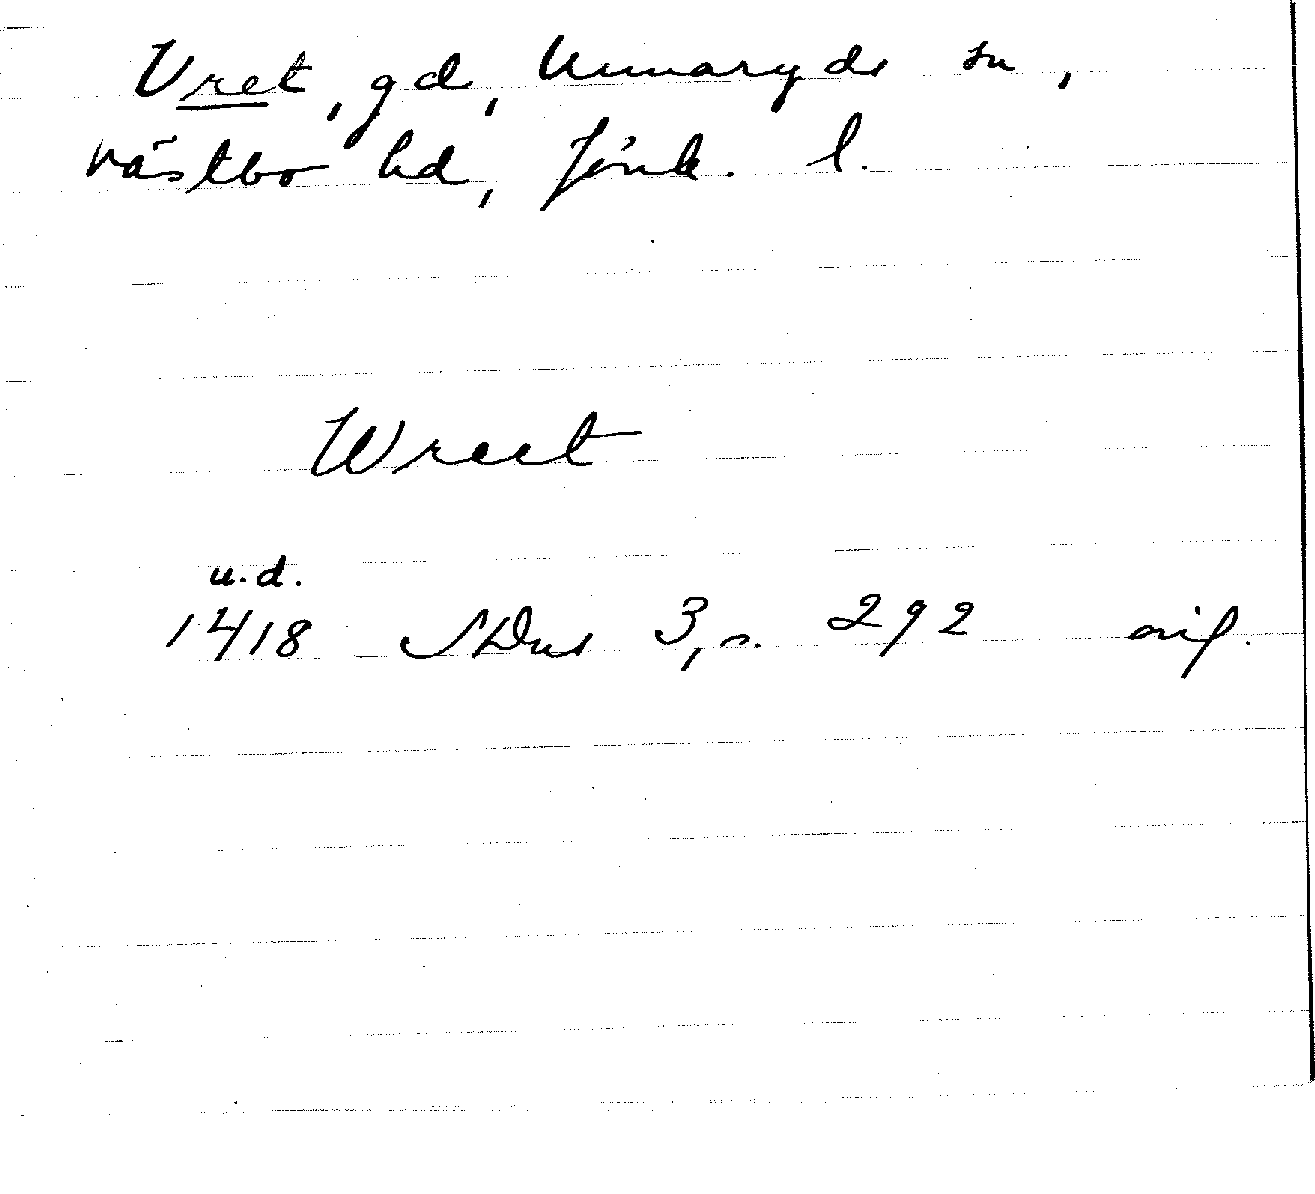 Vret, gd, Unnaryds sn,
Västbo hd, Jönk. l.
Wreet
u.d.
1418 SDns 3, s. 292 orig.